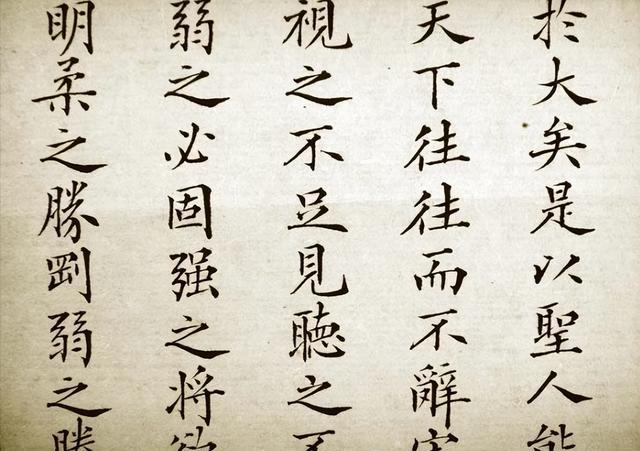 於大矣是以聖人能
天下往往而不辭
視之不足見聽之不
弱之必固强之将欲
明柔之勝剛弱之勝